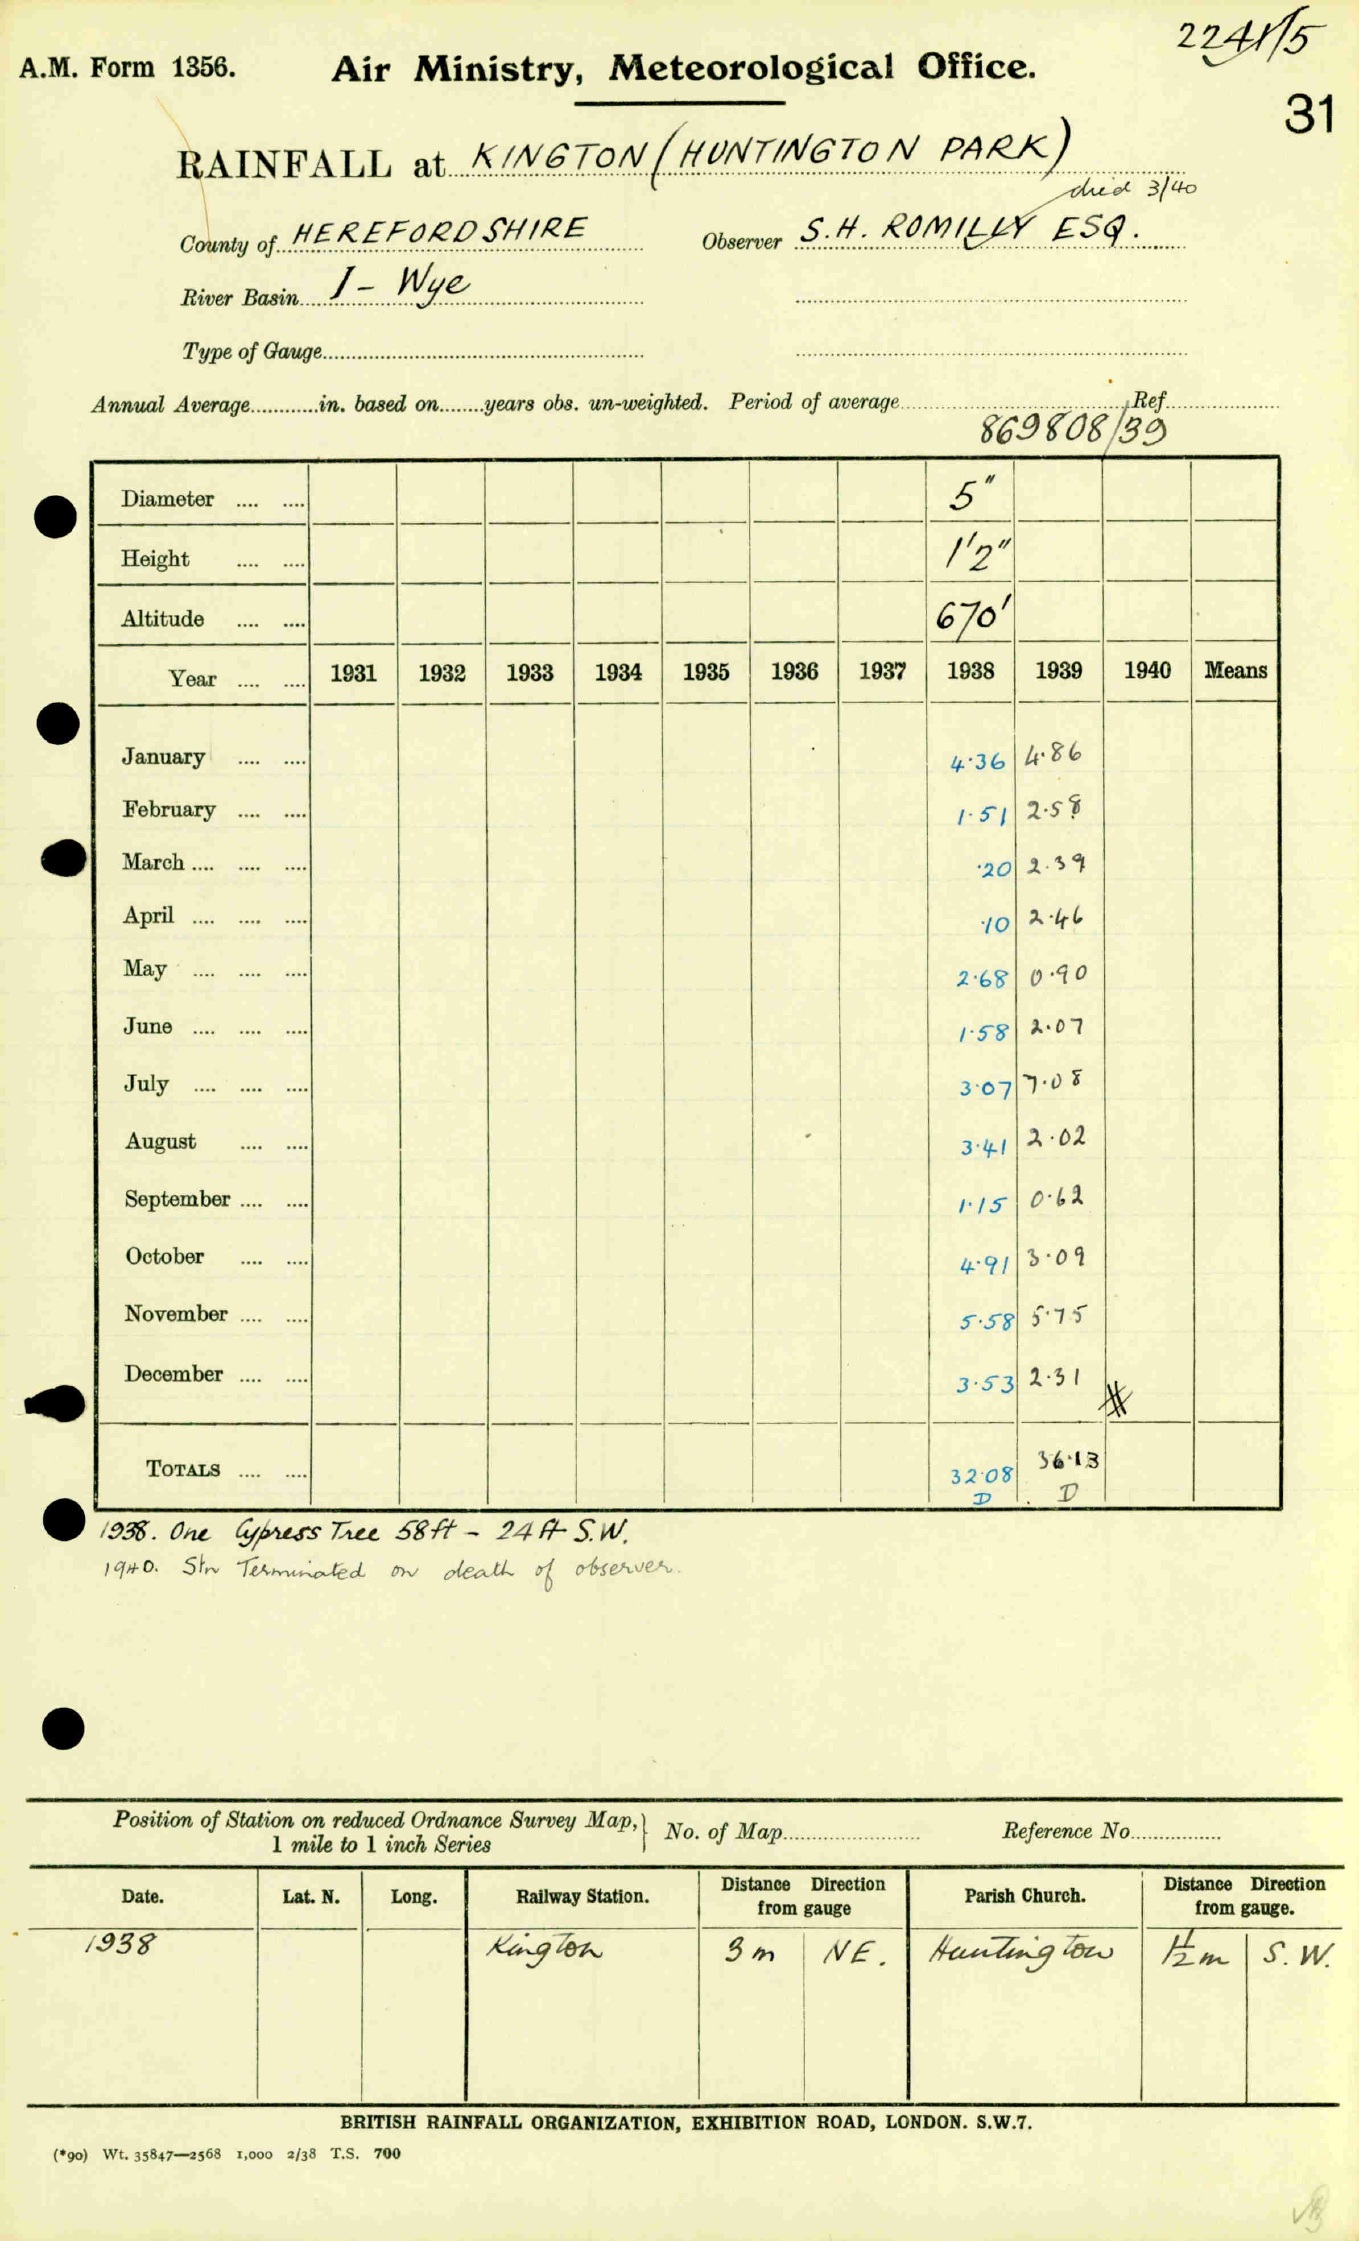 2241/5
A.M. Form 1356. Air Ministry, Meteorological Office.
31
RAINFALL at KINGTON (HUNTINGTON PARK)
died 3/40
County of HEREFORDSHIRE Observer S.H. ROMILLY ESQ.
River Basin I - Wye
Type of Gauge
Annual Average in. based on years obs. un-weighted. Period of average Ref
869808/39
Diameter 5"
Height 1'2"
Altitude 670'
Year 1931 1932 1933 1934 1935 1936 1937 1938 1939 1940 Means
January 4.36 4.86
February 1.51 2.58
March .20 2.39
April .10 2.46
May 2.68 0.90
June 1.58 2.07
July 3.07 7.08
August 3.41 2.02
September 1.15 0.62
October 4.91 3.09
November 5.58 5.75
December 3.53 2.31
TOTALS 32.08 36.13
D D
1938. One Cypress Tree 58ft - 24ft S.W.
1940. Stn Terminated on death of observer.
Position of Station on reduced Ordnance Survey Map, 1 mile to 1 inch Series No. of Map Reference No.
Date. Lat. N. Long. Railway Station. Distance Direction from gauge Parish Church. Distance Direction from gauge.
1938 Kington 3m NE. Huntington 1½m S.W.
BRITISH RAINFALL ORGANIZATION, EXHIBITION ROAD, LONDON. S.W.7.
(*90) Wt. 35847—2568 1,000 2/38 T.S. 700